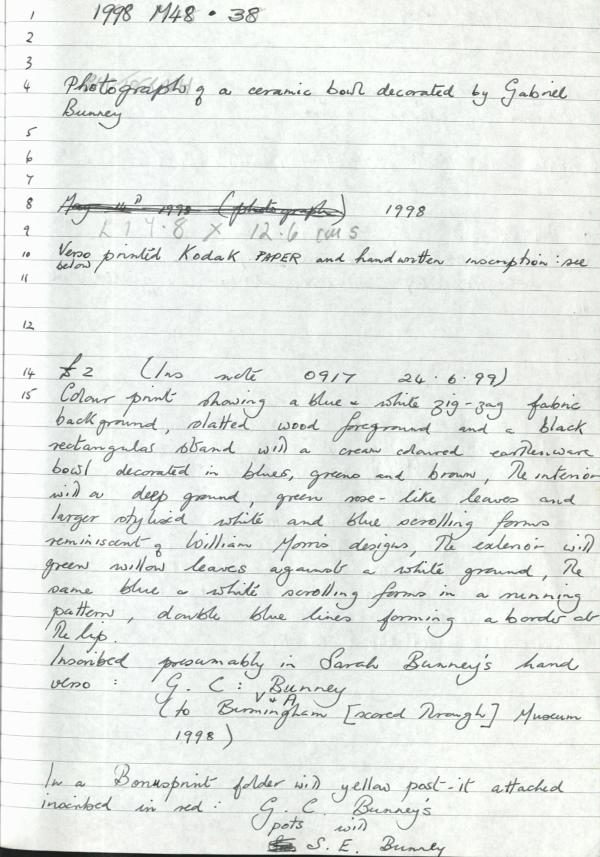 1 1998 M48 · 38
2
3
4 Photograph of a ceramic bowl decorated by Gabriel
Bunney
5
6
7
8 May 14th 1998 (photograph) 1998
9 L 17.8 X 12.6 cms
10 Verso printed Kodak PAPER and handwritten inscription : see
below
11
12
14 £2 (Ins note 0917 24.6.99)
15 Colour print showing a blue & white zig-zag fabric
background, slatted wood foreground and a black
rectangular stand with a cream coloured earthenware
bowl decorated in blues, greens and brown, the interior
with a deep ground, green rose-like leaves and
larger stylised white and blue scrolling forms
reminiscent of William Morris designs, the exterior with
green willow leaves against a white ground, the
same blue & white scrolling forms in a running
pattern, double blue lines forming a border at
the lip.
Inscribed presumably in Sarah Bunney's hand
verso : G. C : Bunney
V & A
(to Birmingham [scored through] Museum
1998)
In a Bonusprint folder with yellow post-it attached
inscribed in red : G. C. Bunney's
pots with
S. E. Bunney